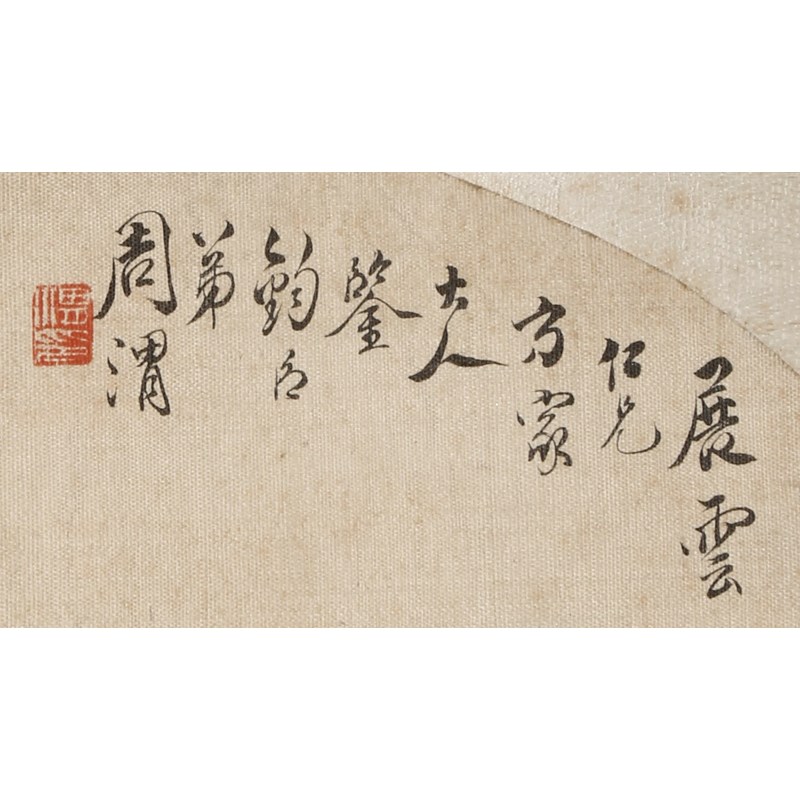 展雲
仁兄
方家
大人
鑒
鈞名
弟
周渭